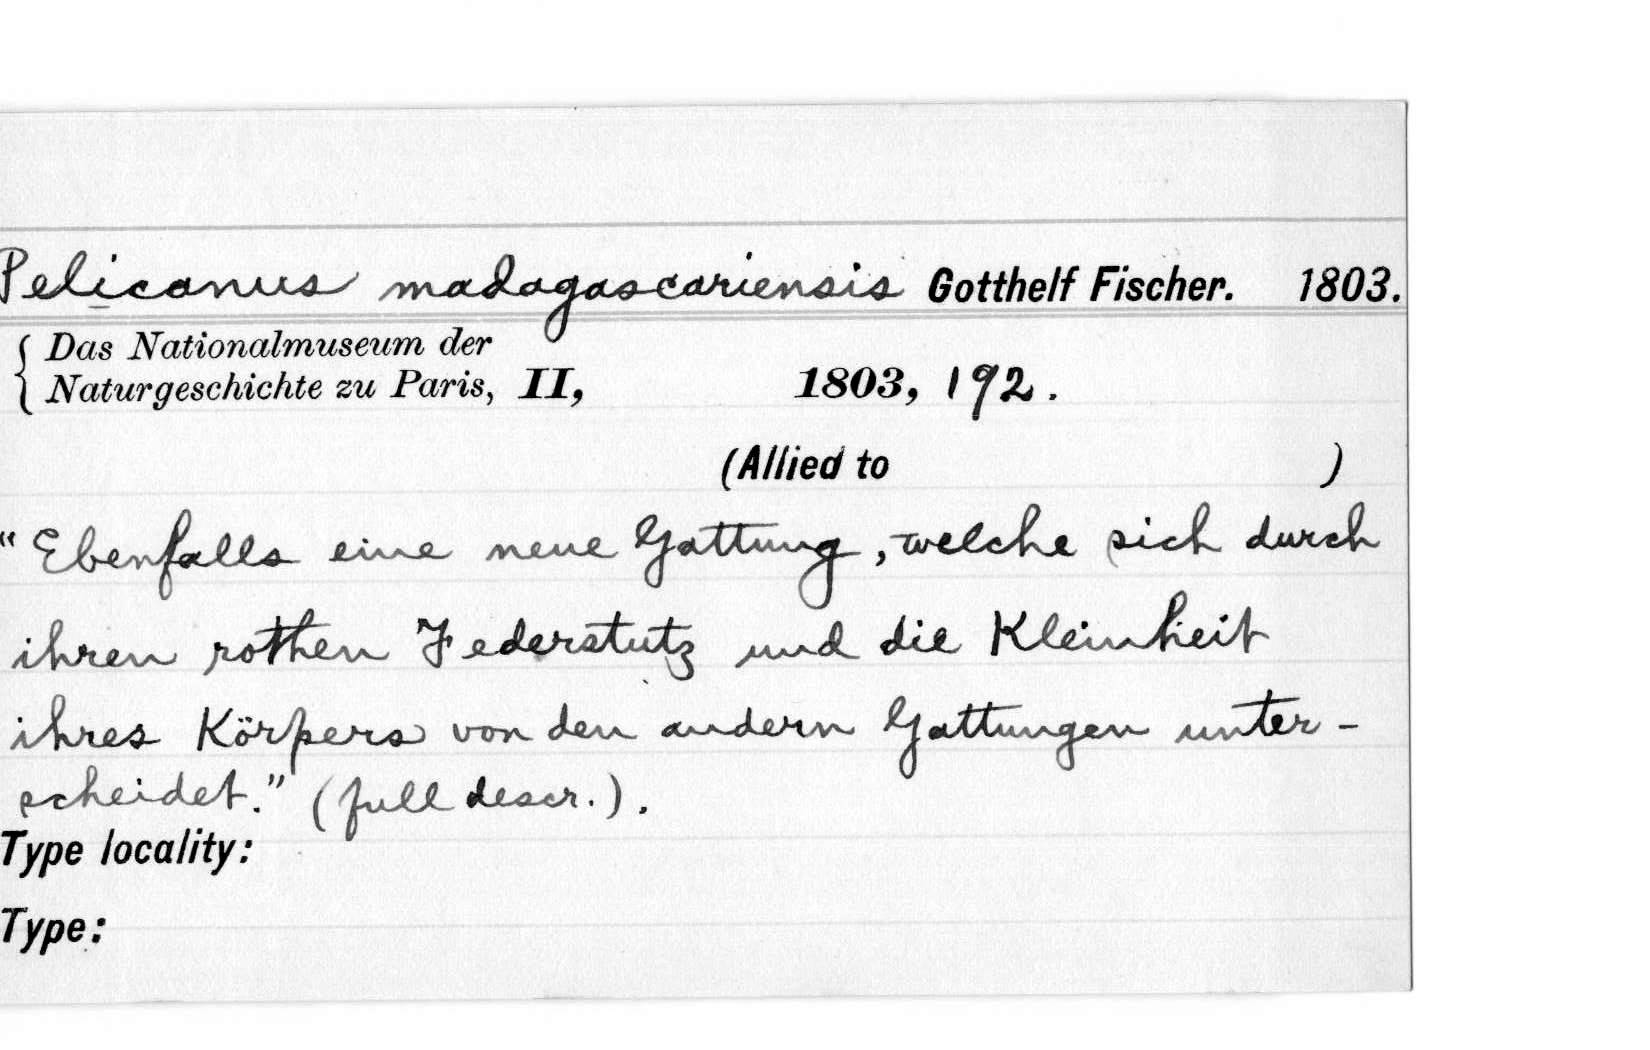 Pelicanus madagascariensis Gotthelf Fischer. 1803.
Das Nationalmuseum der
Naturgeschichte zu Paris, II, 1803, 192.
(Allied to )
"Ebenfalls eine neue Gattung, welche sich durch
ihren rothen Federstutz und die Kleinheit
ihres Körpers von den andern Gattungen unter-
scheidet." (full descr.).
Type locality:
Type: